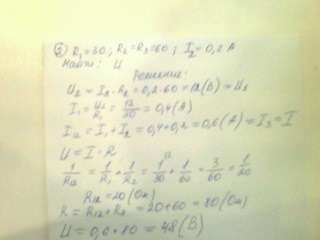 ③ R₁=30; R₂=R₃=60; I₂=0,2A
Найти: U
Решение:
U₂ = I₂·R₂ = 0,2·60=12(В)=U₁
I₁ = U₁/R₁ = 12/30 = 0,4(A)
I₁₂ = I₁+I₂ = 0,4+0,2 = 0,6(A) = I₃=I
U = I·R
1/R₁₂ = 1/R₁ + 1/R₂ = 1/30 + 1/60 = 3/60 = 1/20
R₁₂=20(Ом)
R = R₁₂+R₃ = 20+60 = 80(Ом)
U = 0,6·80 = 48(В)